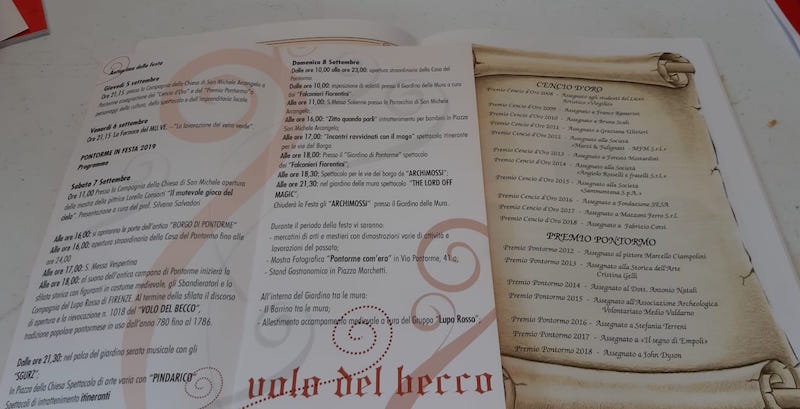 Anteprima della Festa
Giovedì 5 settembre
Ore 21.15 presso la Compagnia della Chiesa di San Michele Arcangelo a
Pontorme assegnazione del "Cencio d'Oro" e del "Premio Pontormo" a
personaggi della cultura, dello spettacolo e dell'imprenditoria locale.
Venerdì 6 settembre
Ore 21.15 La Fornace del MU.VE. – "La lavorazione del vetro verde"
PONTORME IN FESTA 2019
Programma
Sabato 7 Settembre
Ore 11,00 Presso la Compagnia della Chiesa di San Michele apertura
della mostra della pittrice Lorella Consorti "Il mutevole gioco del
cielo". Presentazione a cura del prof. Silvano Salvadori
Alle ore 16,00: si apriranno le porte dell'antico "BORGO DI PONTORME"
Alle ore 16,00: apertura straordinaria della Casa del Pontormo fino alle
ore 24,00
Alle ore 17,00: S. Messa Vespertina
Alle ore 18,00: al suono dell'antica campana di Pontorme inizierà la
sfilata storica con figuranti in costume medievale, gli Sbandieratori e la
Compagnia del Lupo Rosso di FIRENZE. Al termine della sfilata il discorso
di apertura e la rievocazione n. 1018 del "VOLO DEL BECCO",
tradizione popolare pontormese in uso dall'anno 780 fino al 1786.
Dalle ore 21,30: nel palco del giardino serata musicale con gli
"SGURZ".
In Piazza della Chiesa Spettacolo di arte varia con "PINDARICO"
Spettacoli di intrattenimento itineranti
Domenica 8 Settembre
Dalle ore 10,00 alle ore 23,00: apertura straordinaria della Casa del
Pontormo.
Dalle ore 10,00: esposizione di volatili presso il Giardino delle Mura a cura
dei "Falconieri Fiorentini";
Alle ore 11,00: S.Messa Solenne presso la Parrocchia di San Michele
Arcangelo;
Alle ore 16,00: "Zitto quando parli" intrattenimento per bambini in Piazza
San Michele Arcangelo;
Alle ore 17,00: "Incontri ravvicinati con il mago" spettacolo itinerante
per le vie del Borgo.
Alle ore 18,00: Presso il "Giardino di Pontorme" spettacolo
dei "Falconieri Fiorentini";
Alle ore 18,30: Spettacolo per le vie del borgo de "ARCHIMOSSI";
Alle ore 21,30: nel giardino delle mura spettacolo "THE LORD OFF
MAGIC";
Chiuderà la Festa gli "ARCHIMOSSI" presso il Giardino delle Mura.
Durante il periodo della festa vi saranno:
- mercatini di arti e mestieri con dimostrazioni varie di attività e
lavorazioni del passato;
- Mostra Fotografica "Pontorme com'era" in Via Pontorme, 41a;
- Stand Gastronomico in Piazza Marchetti.
All'interno del Giardino tra le mura:
- Il Barrino tra le mura;
- Allestimento accampamento medievale a cura del Gruppo "Lupo Rosso";
volo del becco
CENCIO D'ORO
Premio Cencio d'Oro 2008 - Assegnato agli studenti del Liceo
Artistico «Virgilio»
Premio Cencio d'Oro 2009 - Assegnato a Franco
Premio Cencio d'Oro 2010 - Assegnato a Bruno Scali
Premio Cencio d'Oro 2011 - Assegnato a Graziana Ulivieri
Premio Cencio d'Oro 2012 - Assegnato alla Società
«Mazzi & Salvagnoli - MFM S.r.l.»
Premio Cencio d'Oro 2013 - Assegnato a Teresa Mostardini
Premio Cencio d'Oro 2014 - Assegnato alla Società
«Angiolo Rosselli e fratelli S.r.l.»
Premio Cencio d'Oro 2015 - Assegnato alla Società
«Sammontana S.p.A.»
Premio Cencio d'Oro 2016 - Assegnato a Fondazione SESA
Premio Cencio d'Oro 2017 - Assegnato a Mazzoni Ferro S.r.l.
Premio Cencio d'Oro 2018 - Assegnato a Fabrizio Corsi
PREMIO PONTORMO
Premio Pontormo 2012 - Assegnato al pittore Marcello Ciampolini
Premio Pontormo 2013 - Assegnato alla Storica dell'Arte
Cristina Gelli
Premio Pontormo 2014 - Assegnato al Dott. Antonio Natali
Premio Pontormo 2015 - Assegnato all'Associazione Archeologica
Volontariato Medio Valdarno
Premio Pontormo 2016 - Assegnato a Stefania Terreni
Premio Pontormo 2017 - Assegnato a «Il segno di Empoli»
Premio Pontormo 2018 - Assegnato a John Dyson